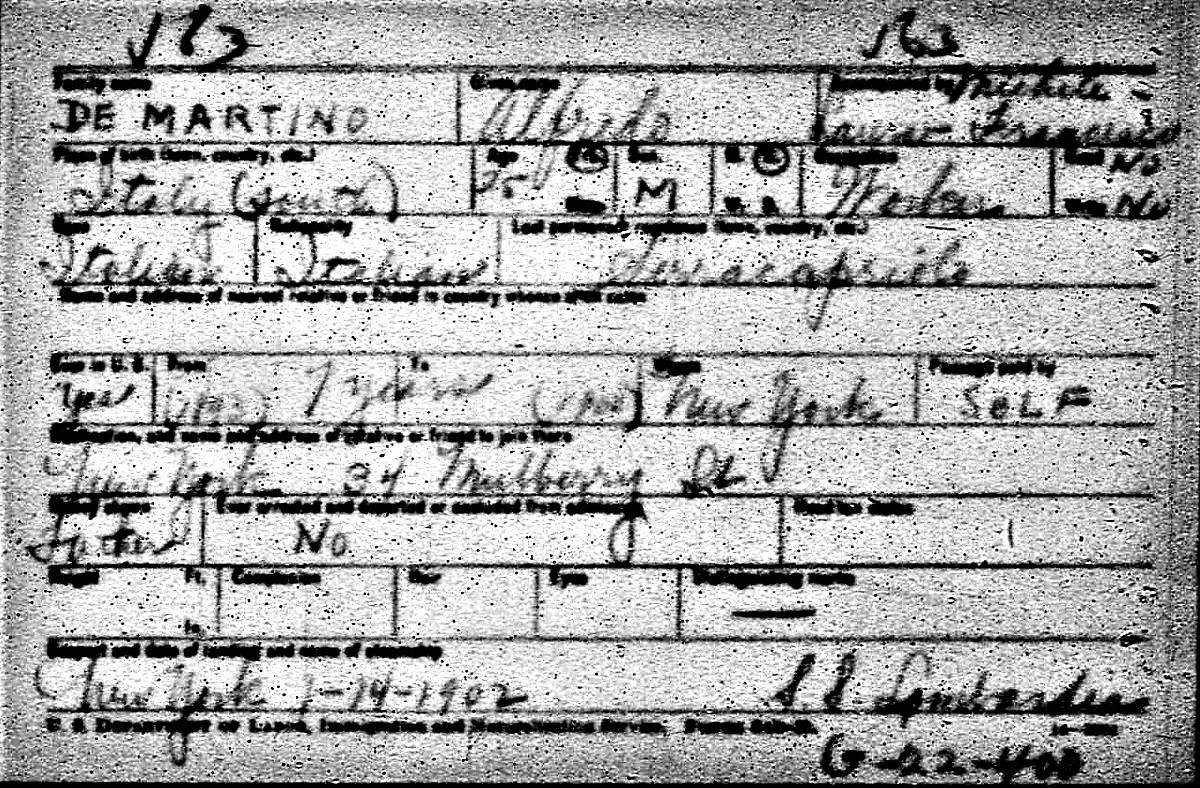 163 163
Family name Given name Accompanied by Michele
DE MARTINO Alfredo Francisco
Place of birth (town, country, etc.) Age Yrs. Sex M. S. Occupation Read No
Italy (South) 35 Mos. M W. D. Worker Write No
Race Nationality Last permanent residence (town, country, etc.)
Italian Italian
Name and address of nearest relative or friend in country whence alien came
Ever in U. S. From To Where Passage paid by
Yes 7 years New York SELF
Destination, and name and address of relative or friend to join there
New York 34 Mulberry St
Money shown Ever arrested and deported or excluded from admission Head tax status
No
Height Ft. Complexion Hair Eyes Distinguishing marks
In. —
Seaport and date of landing and name of steamship
New York 1-14-1902 S S Lombardia
U. S. Department of Labor, Immigration and Naturalization Service,
6-22-400